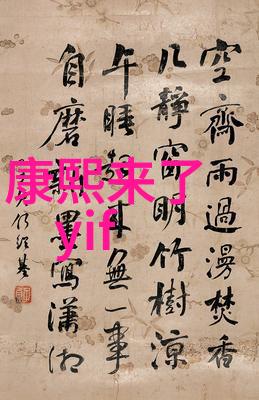 空齋雨過漫焚香
几靜窗明竹樹涼
午睡起來無一事
自磨新墨寫瀟湘
康熙来了
yif